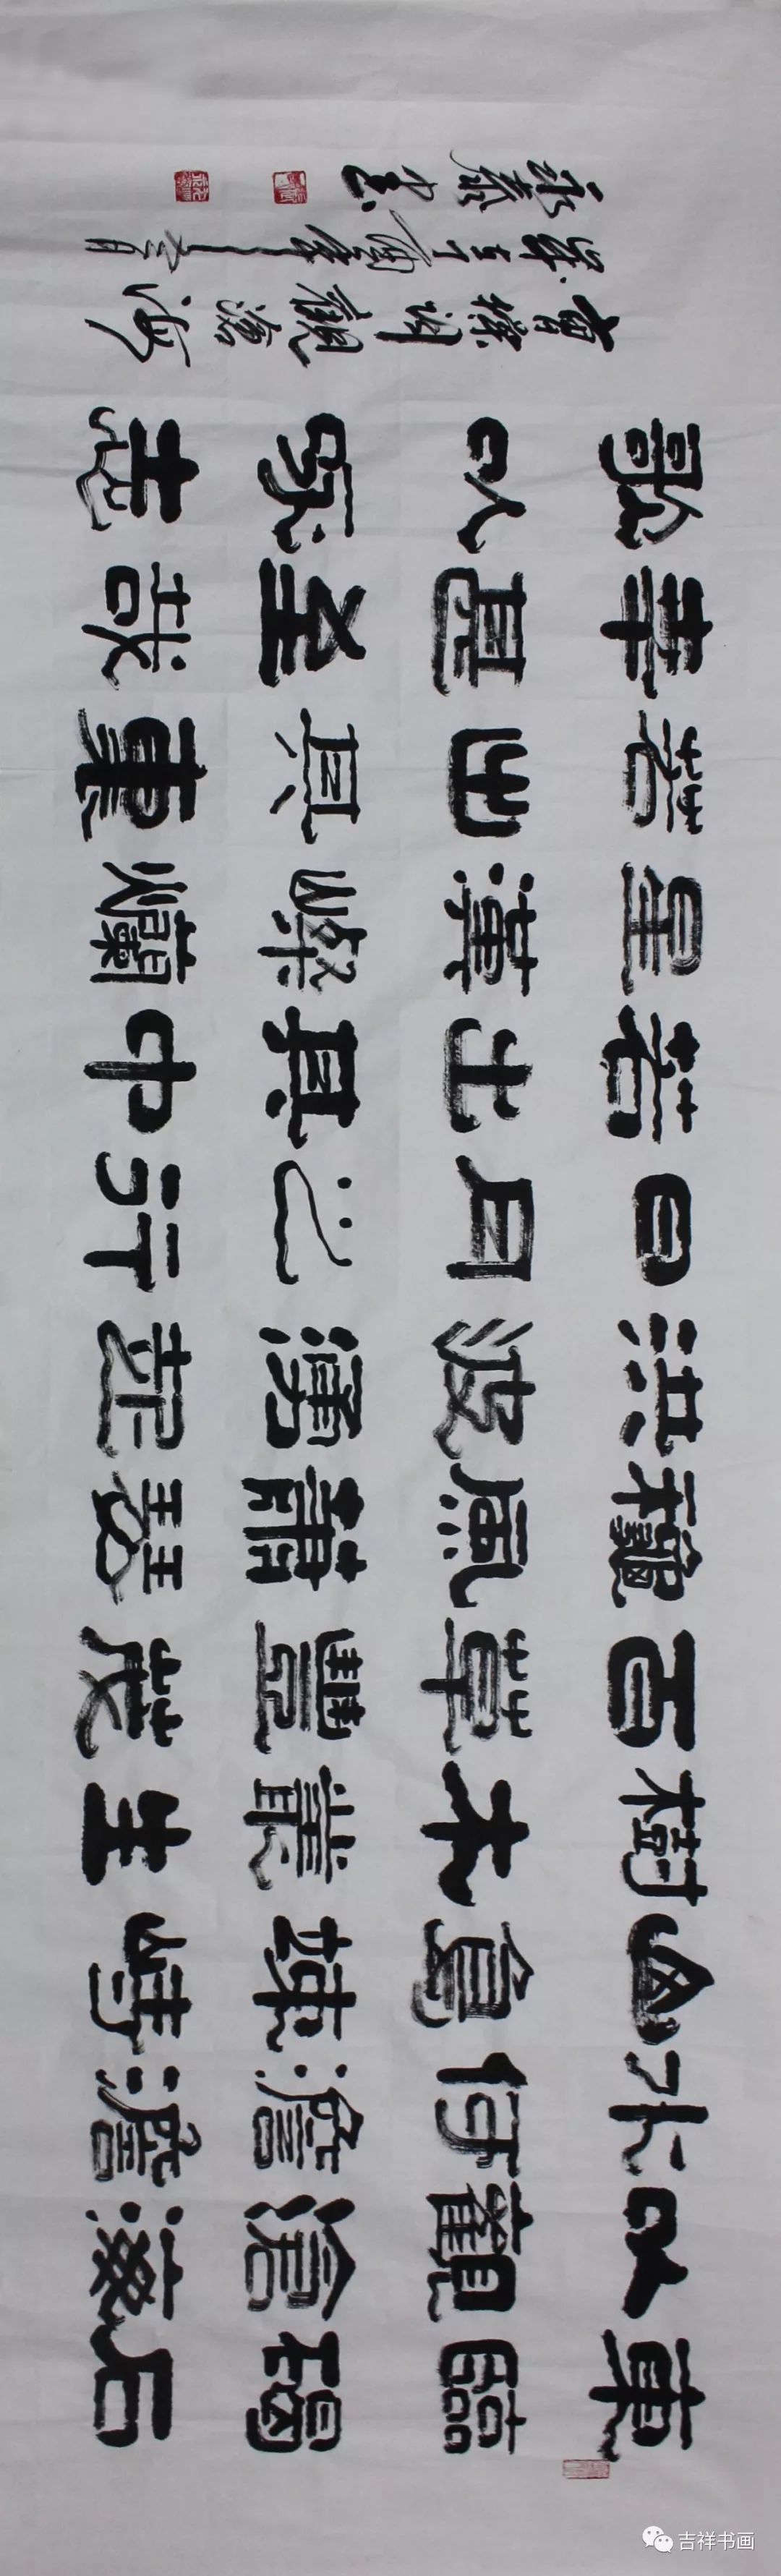 東臨碣石
以觀滄海
水何澹澹
山島竦峙
樹木叢生
百草豐茂
龝風蕭瑟
洪波湧起
日月之行
若出其中
星漢燦爛
若出其裏
幸甚至哉
歌以詠志
曹操 觀滄海
歲在丁酉年
永泰書
吉祥书画